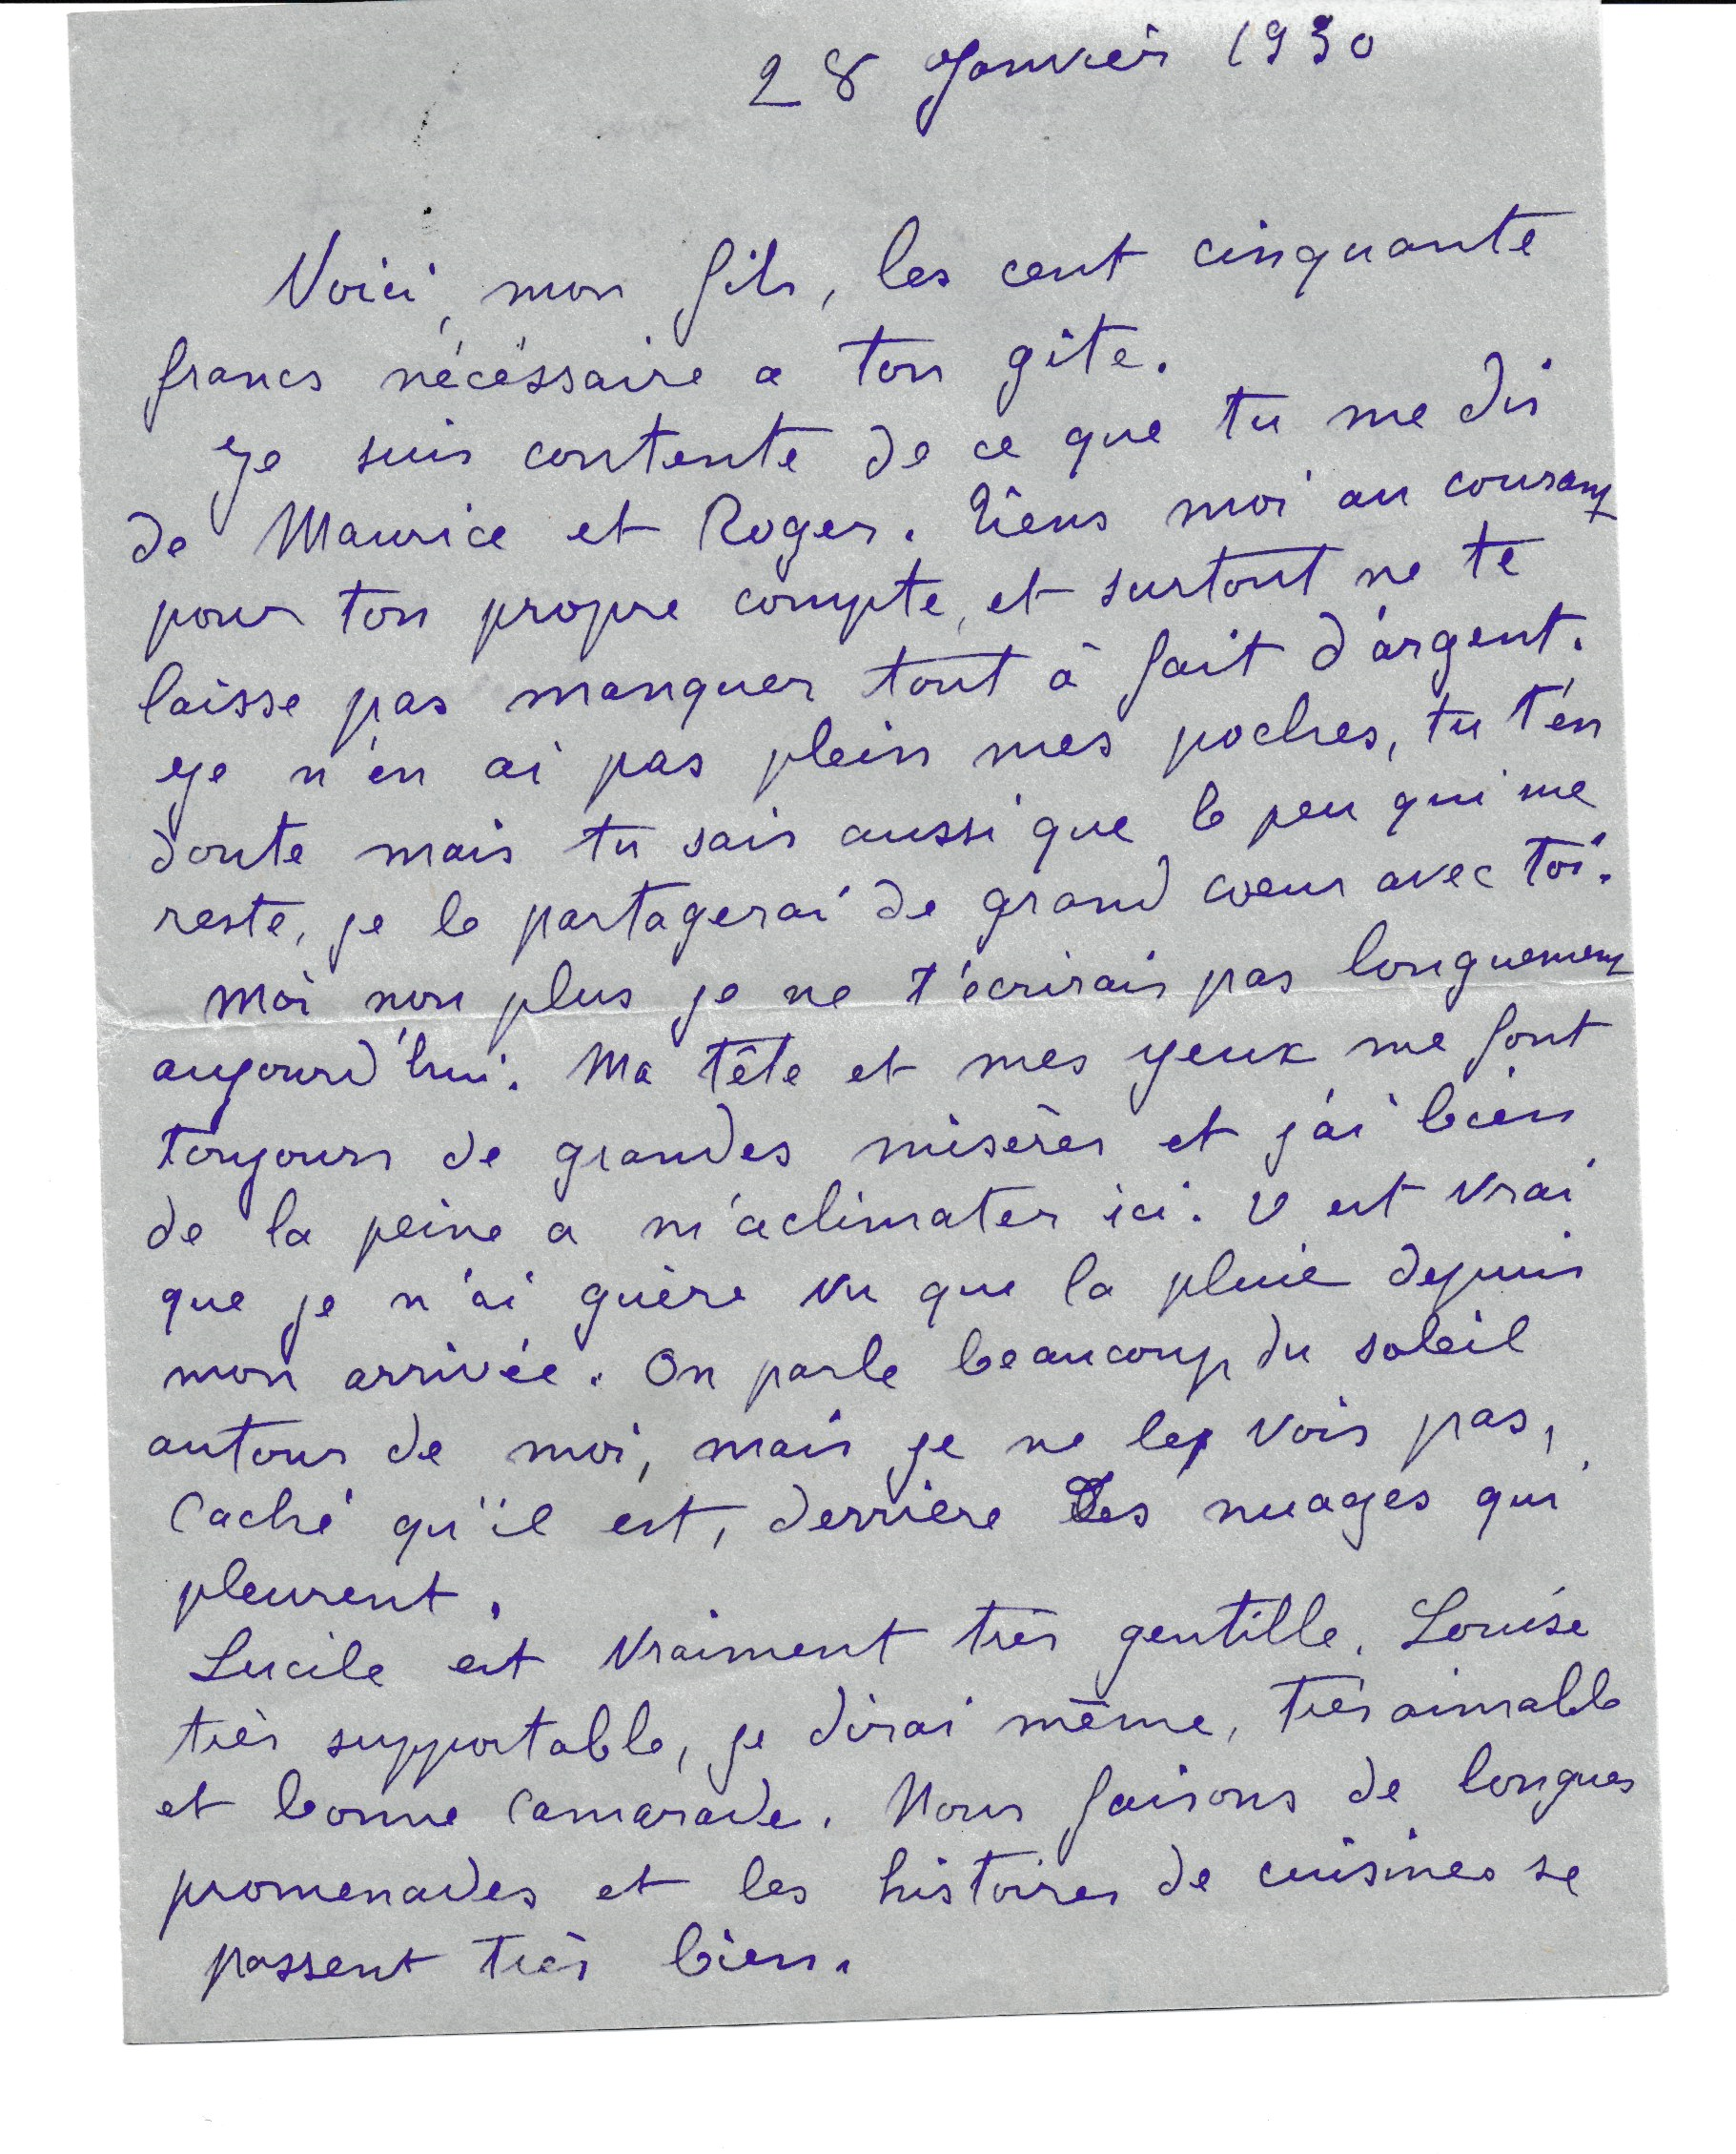 28 Janvier 1930
Voici, mon fils, les cent cinquante
francs nécéssaire a ton gîte.
Je suis contente de ce que tu me dis
de Maurice et Roger. Tiens moi au courant
pour ton propre compte, et surtout ne te
laisse pas manquer tout à fait d'argent.
Je n'en ai pas plein mes poches, tu t'en
doute mais tu sais aussi que le peu qui me
reste, je le partagerai de grand coeur avec toi.
Moi non plus je ne t'écrirais pas longuement
aujourd'hui. Ma tête et mes yeux me font
toujours de grandes misères et j'ai bien
de la peine a m'aclimater ici. Il est vrai
que je n'ai guère vu que la pluie depuis
mon arrivée. On parle beaucoup du soleil
autour de moi, mais je ne le vois pas,
caché qu'il est, derrière les nuages qui
pleurent.
Lucile est vraiment très gentille. Louise
très supportable, je dirai même, très aimable
et bonne camarade. Nous faisons de longues
promenades et les histoires de cuisines se
passent très bien.